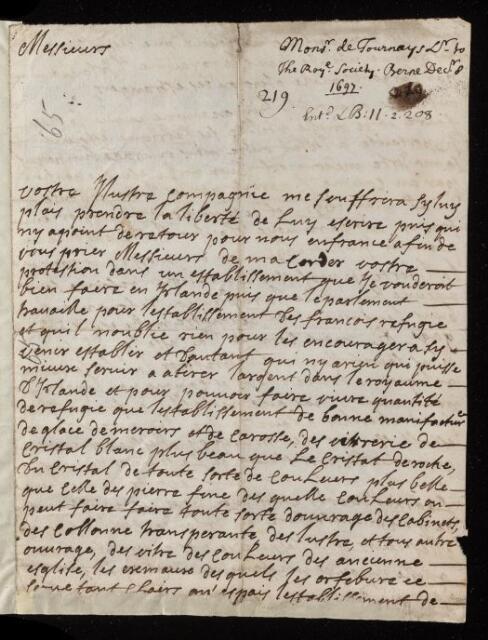 Messieurs
Monsr. de Tournays Lr. to
The Roye. Society. Berne Decr. 8
1697.
219
Entd. LB: 11 . 2. 208
65
vostre Jllustre compagnie me souffrira sy luy
plais prendre la liberté de Luy escrire puis qui
ny a point de retour pour nous enfrance afin de
vous prier Messieurs de macorder vostre
protestion dans un establissement que Je vouderoit
bien faire en Jrlande puis que le parlement
travaille pour lestablissement des francois refugie
et quil noublie rien pour les encourager a sy
venir establier et dautant qui ny a rien qui puisse
mieux servir a atirer largent dans le royaume
DJrlande et pour pouvoir faire vivre quantité
de refugie que lestablissement de bonne manifactur
de glace de meroirs et de carosse, des vitrerie de
Cristal blanc plus beau que Le Cristal de roche,
Du Cristal de toute sorte de couLeurs plus belle
que celle des pierre fine des quelle couLeurs on
peut faire faire toute sorte douvrage des Cabinets,
des Collonne transperante, des lustre et tous autre
ouvrage, des vitre des couLeurs des ancienne
esglise, les des quels les orfebure ce
tant espais lestablissement de